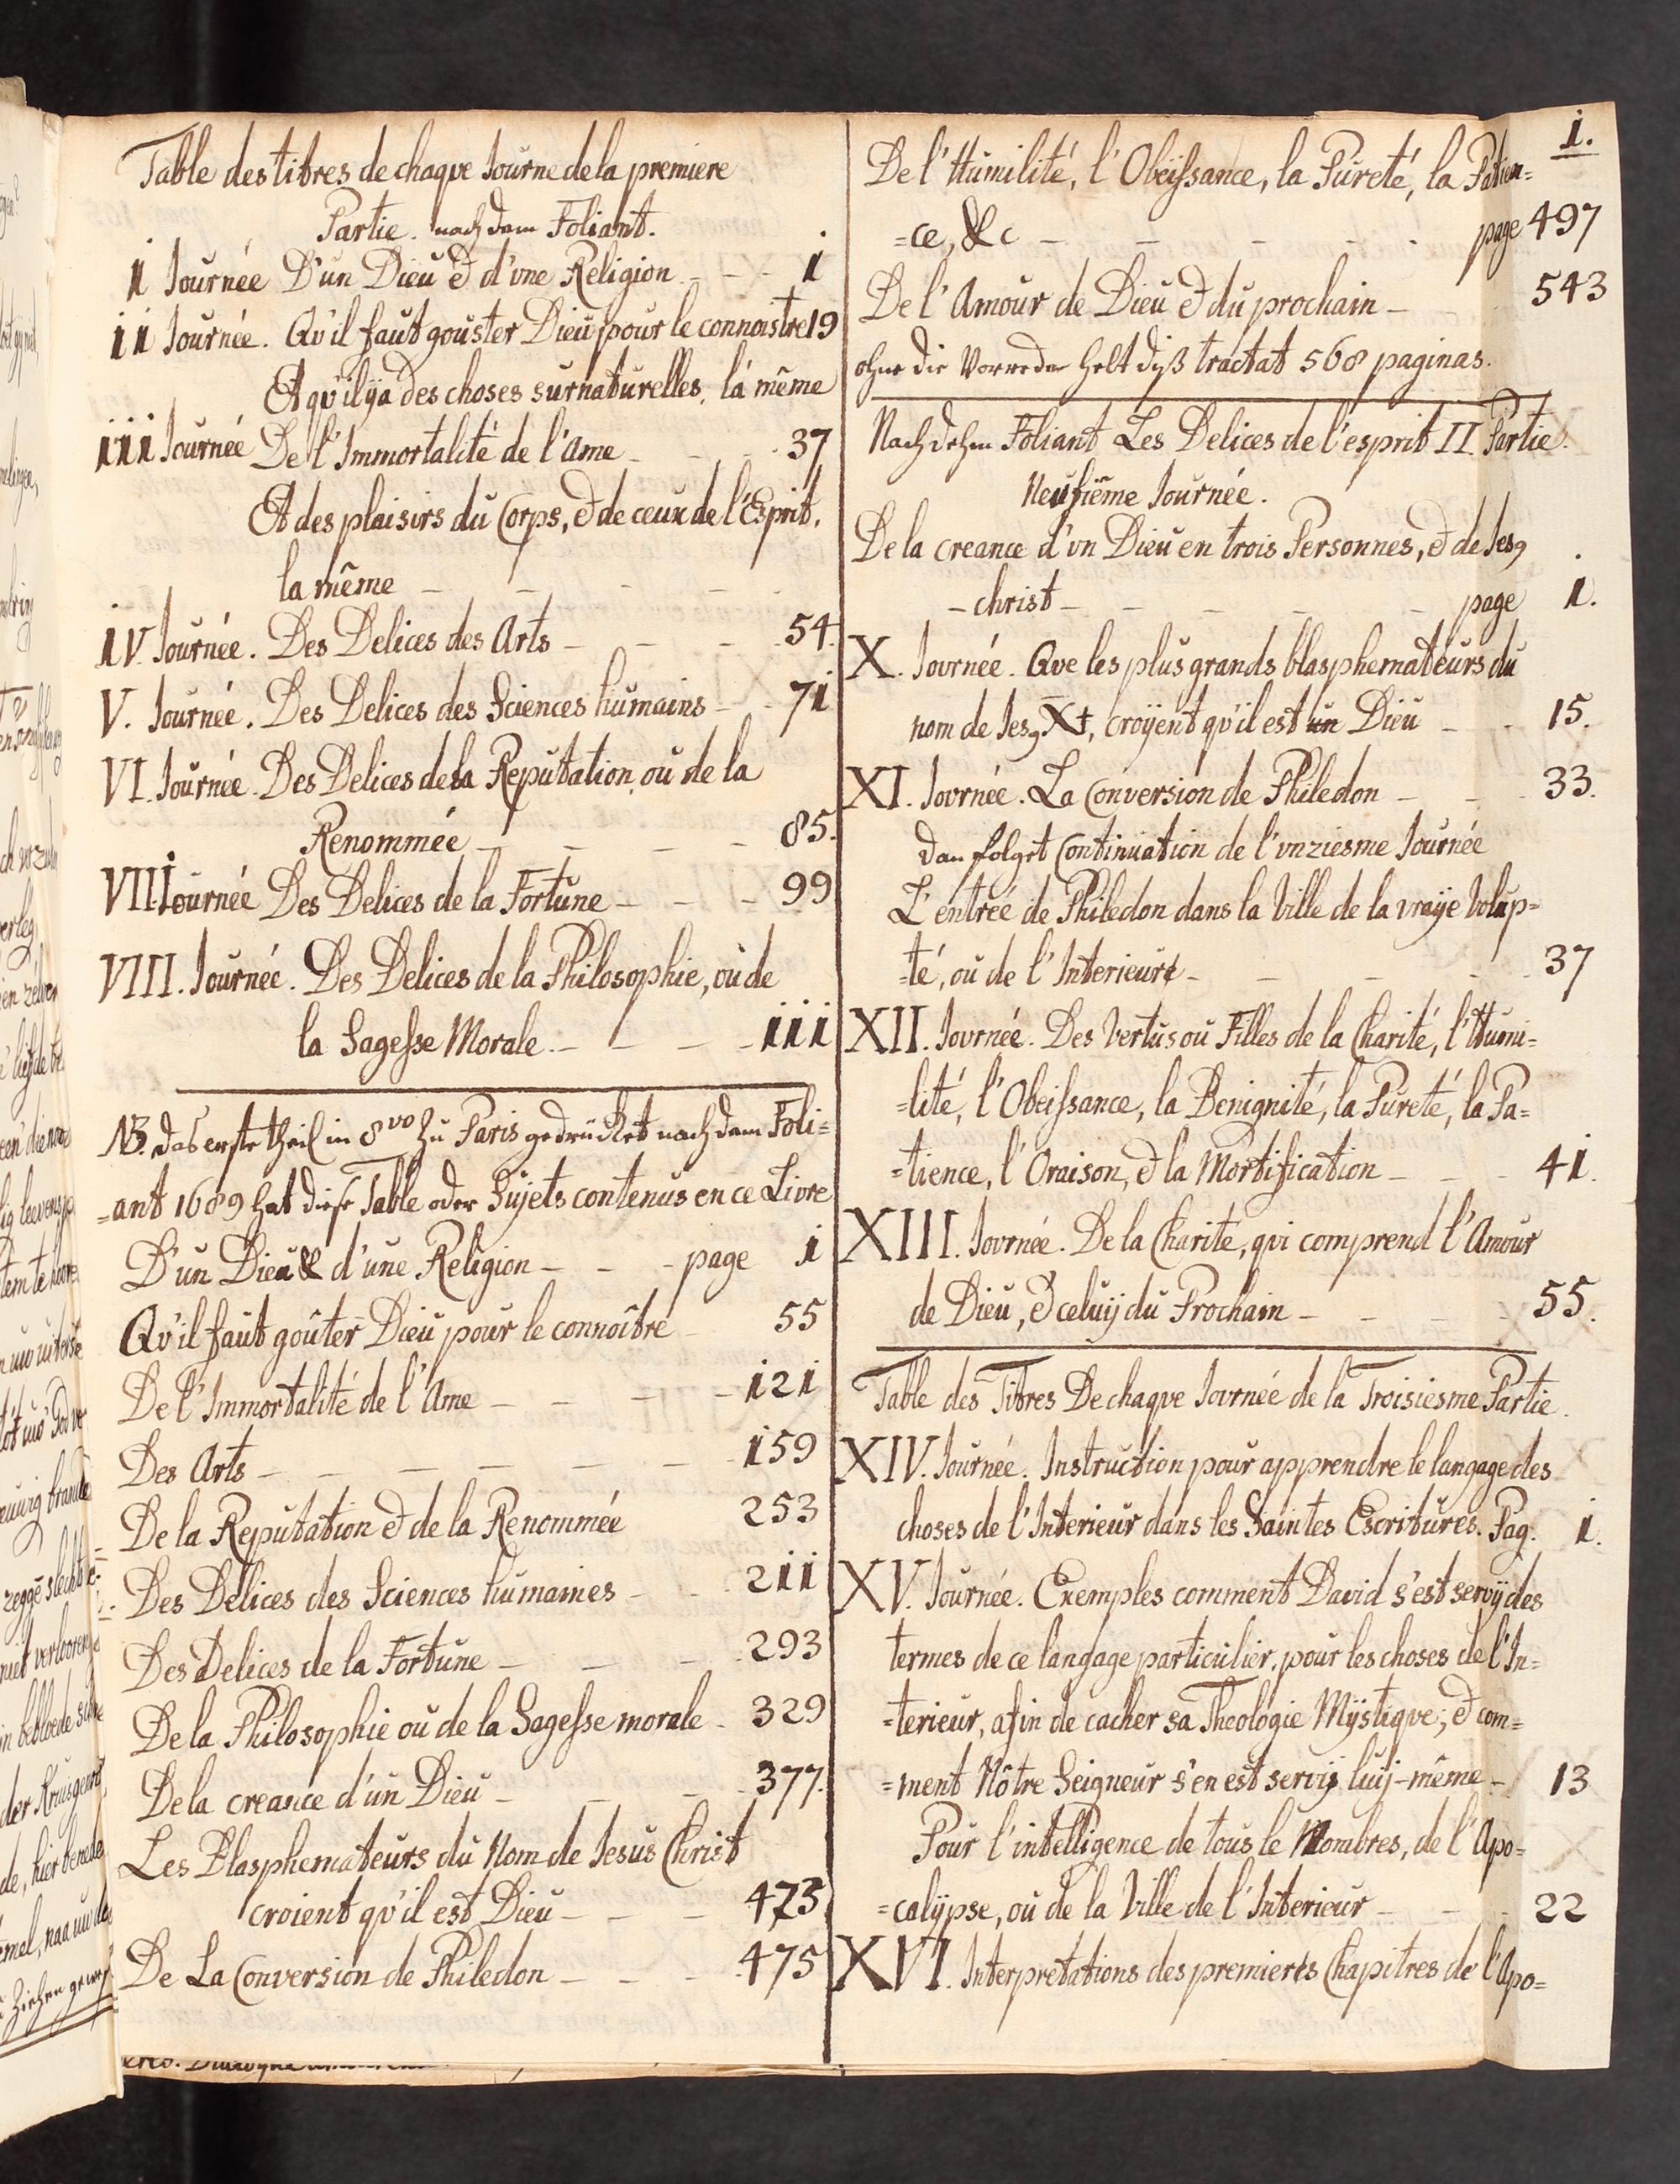 Table des titres de chaque Journe de la premiere
Partie. nach dem Foliant.
i Journée D'un Dieu & d'vne Religion - - - i
ii Journée. Qu'il faut gouster Dieu pour le connoistre 19
Et qu'il ÿa des choses surnaturelles. lá même
iii Journée De l'Immortalité de l'Ame - - - 37
Et des plaisirs du Corps, & de ceux de l'Esprit.
la même - - - -
iv. Journée. Des Delices des Arts - - - 54.
V. Journée. Des Delices des Sciences humains - - 71
VI. Journée. Des Delices de la Reputation, ou de la
Renommée - - - - 85.
VII. Journée Des Delices de la Fortune - - - 99
VIII. Journée. Des Delices de la Philosophie, ou de
la Sagesse Morale. - - - - iii
NB. das erste theil in 8vo zu Paris gedrücket nach dem Foli=
=ant 1689 hat diese Table oder Sujets contenus en ce Livre
D'un Dieu & d'une Religion - - - page i
Qu'il faut goûter Dieu pour le connoître - 55
De l'Immortalité de l'Ame - - - - 121
Des Arts - - - - - - 159
De la Reputation & de la Renommée 253
Des Delices des Sciences humaines - - - 211
Des Delices de la Fortune - - - - 293
De la Philosophie ou de la Sagesse morale - 329
De la creance d'un Dieu - - - 377.
Les Blasphemateurs du Nom de Jesus Christ
croient qu'il est Dieu - - - 473
De La Conversion de Philedon - - - 475
i.
De l'Humilité, l'Obeïssance, la Pureté, la Patien=
=ce, &c - - - - - page 497
De l'Amour de Dieu & du prochain - - 543
ohne die Vorrede helt diß tractat 568 paginas.
Nach dehm Foliant Les Delices de l'esprit II. Partie.
Neufiême Journée.
De la creance d'vn Dieu en trois Personnes, & de Jes9
-christ - - - - - page 1.
X. Journée. Que les plus grands blasphemateurs du
nom de Jes9 Xt, croÿent qu'il est un Dieu - - 15.
XI. Journée. La Conversion de Philedon - - - 33.
dan folget Continuation de l'vnziesme Journée
L'entrée de Philedon dans la Ville de la vraÿe Volup=
=té, ou de l'Interieure - - - - 37
XII. Journée. Des Vertus ou Filles de la Charité, l'Humi=
=lité, l'Obeissance, la Benignité, la Pureté, la Pa=
=tience, l'Oraison, & la Mortification - - - 41.
XIII. Journée. De la Charité, qui comprend l'Amour
de Dieu, & celuÿ du Prochain - - - - 55.
Table des Titres De chaque Journée de la Troisiesme Partie.
XIV. Journée. Instruction pour apprendre le langage des
choses de l'Interieur dans les Saintes Escritures. Pag. i.
XV. Journée. Exemples comment David s'est servÿ des
termes de ce langage particulier, pour les choses de l'In=
=terieur, afin de cacher sa Theologie Mÿstique; & com=
=ment Nôtre Seigneur s'en est servÿ luÿ-même - 13
Pour l'intelligence de tous le Nombres, de l'Apo=
=calÿpse, ou de la Ville de l'Interieur - - - 22
XVI. Interpretations des premiers Chapitres de l'Apo=